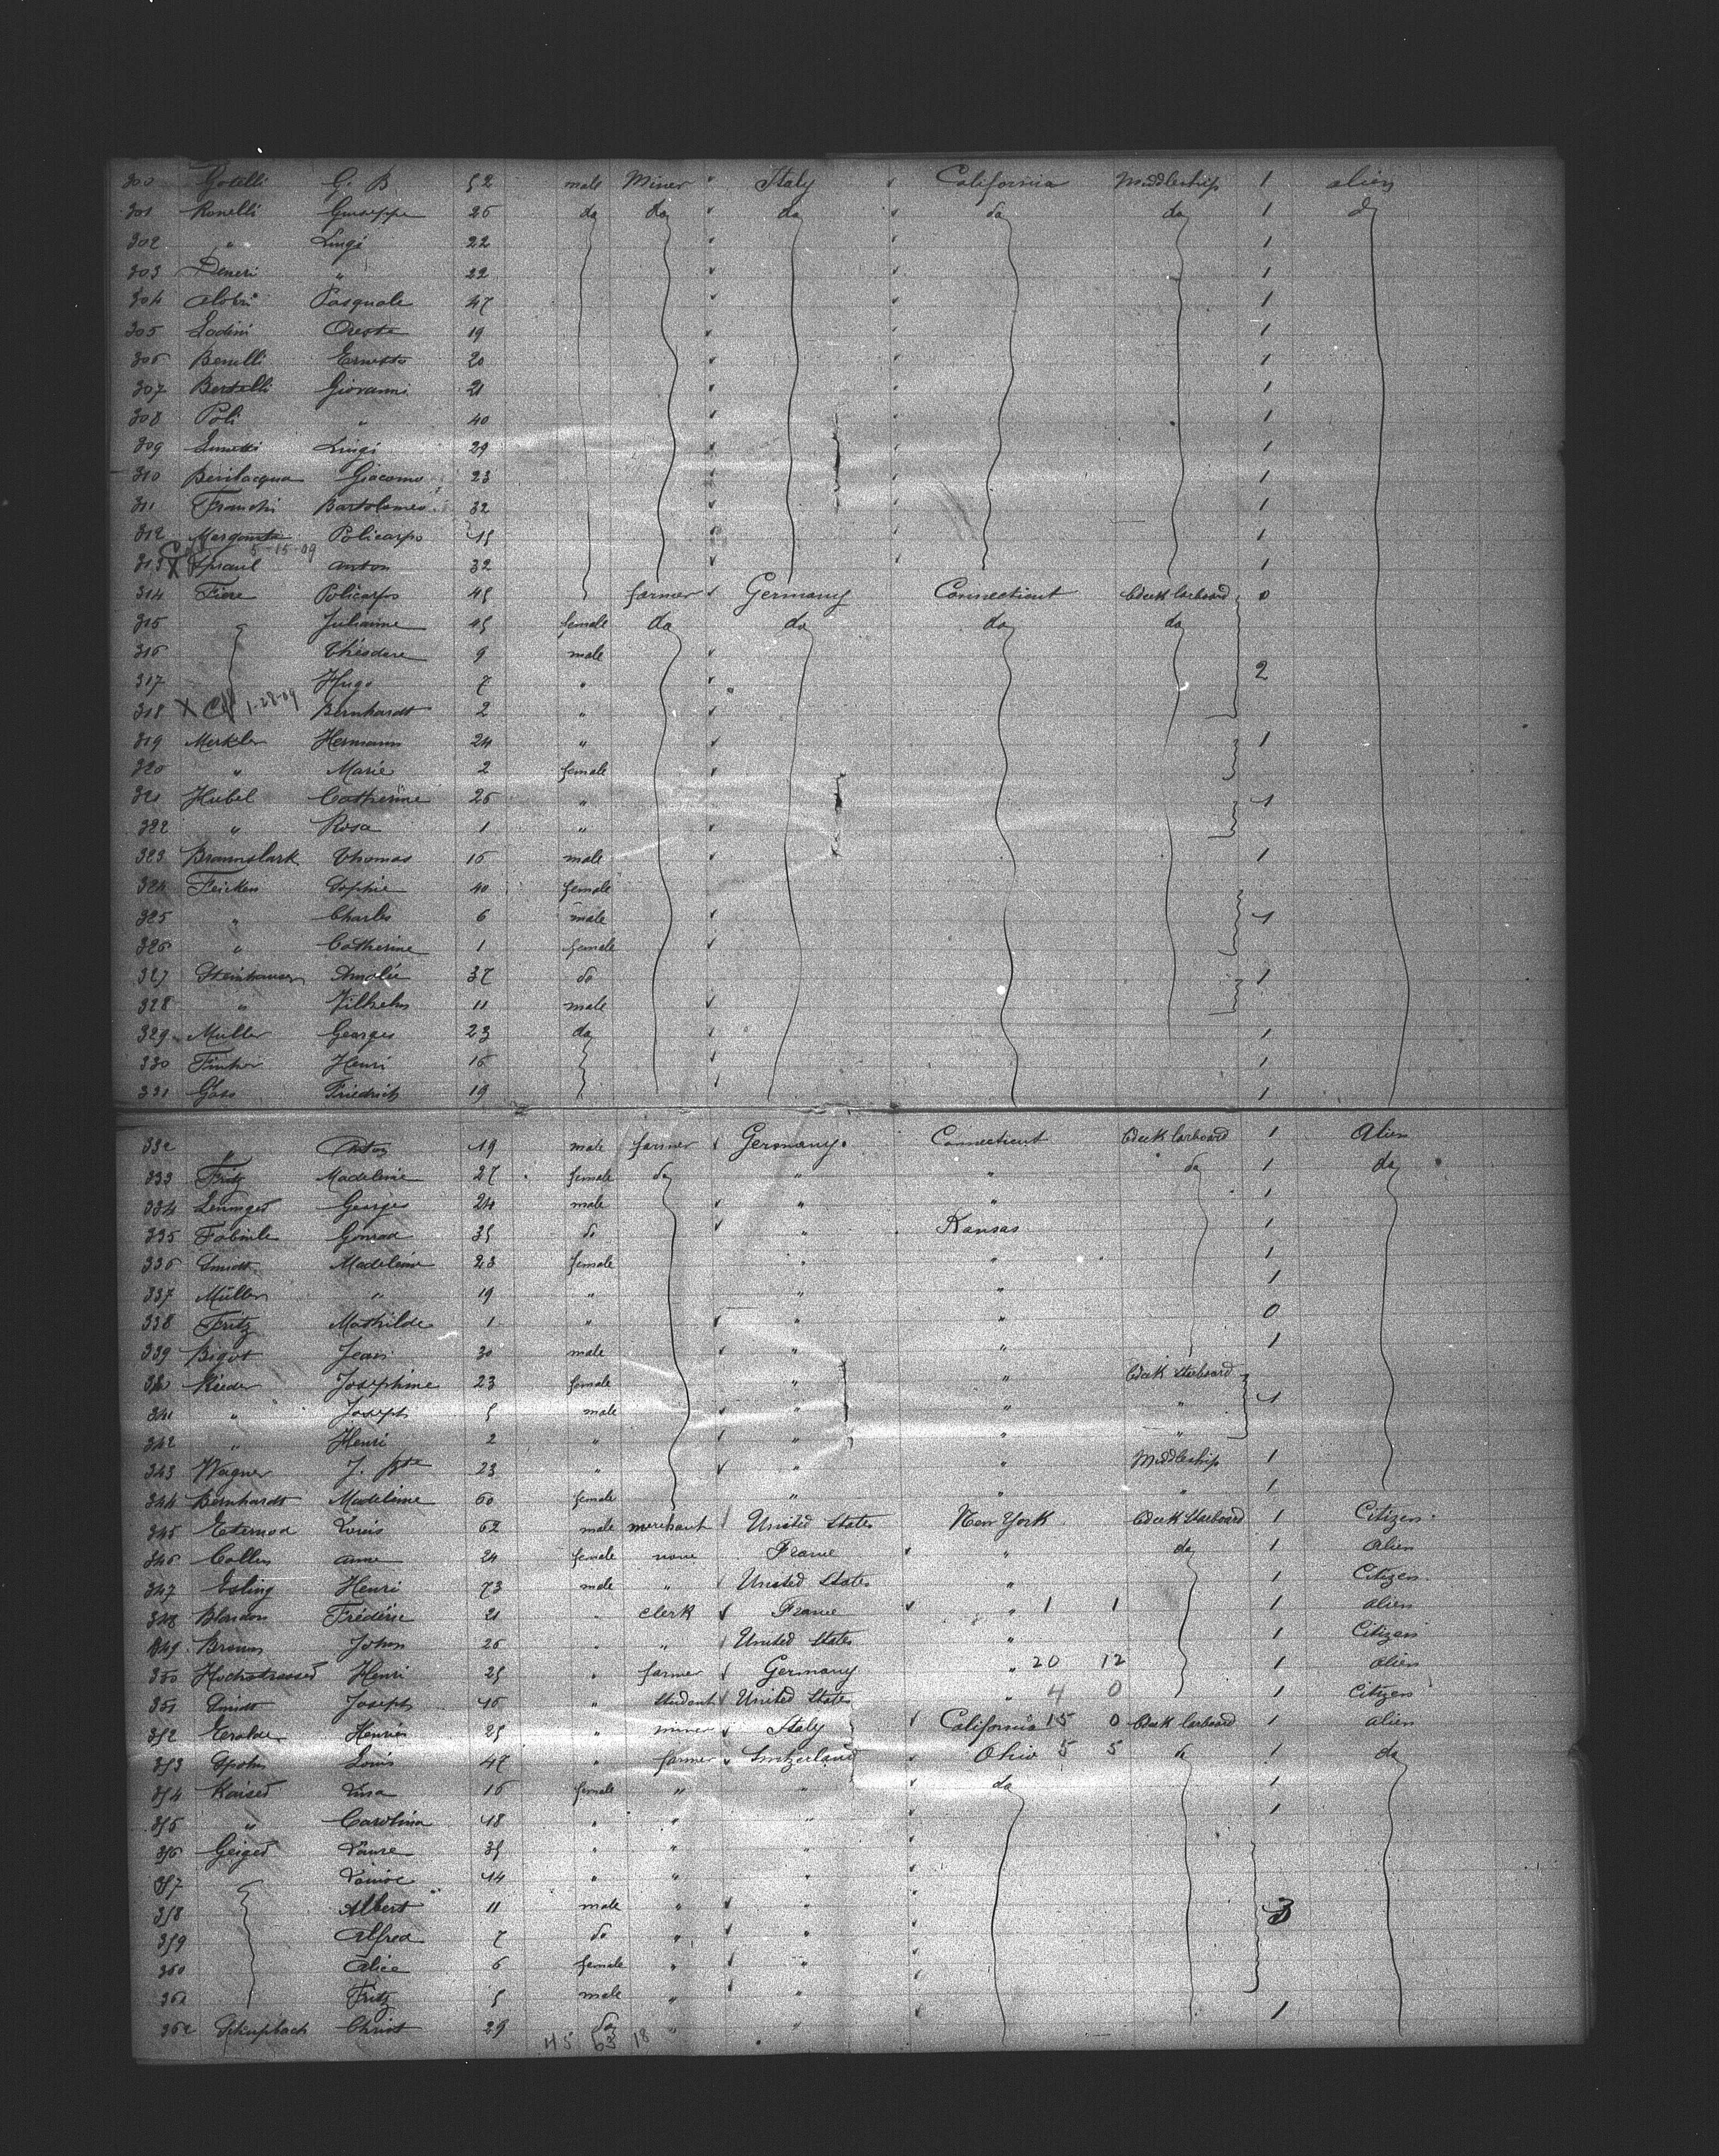 300 Gotelli G. B. 52 male Miner Italy California Middleship 1 alien
301 Ronelli Giuseppe 26 do do do do do 1 do
302 " Luigi 22 1
303 Deneri " 22 1
304 Pasquale 47 1
305 Ladini Oreste 19 1
306 Benelli Ernesto 20 1
307 Bertelli Giovanni 21 1
308 Poli " 40 1
309 Luigi 29 1
310 Bevilacqua Giacomo 23 1
311 Franchi Bartolomeo 32 1
312 Policarpo 1
5-15-09
313 X anton 32 1
314 Fiere Policarpo 45 farmer Germany Connecticut Deck larboard 0
315 Julianne 45 female do do do do
316 Théodore 9 male
317 Hugo 7 " 2
318 X 1-28-09 Bernhardt 2 "
319 Merkler Hermann 24 " 1
320 " Marie 2 female
321 Hubel Catherine 26 " 1
322 " Rosa 1 "
323 Thomas 16 male 1
324 Feicken Sophie 40 female
325 " Charles 6 male 1
326 " Catherine 1 female
327 Steinhauser Amalie 37 do 1
328 " Vilhelm 11 male
329 Muller Georges 23 do 1
330 Henri 16 1
331 Gass Friedrich 19 1
332 " Anton 19 male farmer Germany Connecticut Deck larboard 1 Alien
333 Fritz Madeleine 27 female do " " do 1 do
334 Georges 24 male " " 1
335 Conrad 35 do " Kansas 1
336 Madeleine 28 female " " 1
337 Müller " 19 " " " 1
338 Fritz Mathilde 1 " " " 0
339 Bigot Jean 30 male " " 1
340 Rieder Josephine 23 female " " Deck Starboard
341 " Joseph 5 male " " " 1
342 " Henri 2 " " " "
343 Wagner J. Bte 23 " " " Middleship 1
344 Bernhardt Madeleine 60 female " " " 1
345 Eternod Louis 62 male merchant United States New York Deck Starboard 1 Citizen
346 Collin anne 24 female none France " do 1 Alien
347 Esling Henri 73 male " United States " 1 Citizen
348 Blondon Frédéric 21 " clerk France " 1 1 1 alien
349 Brown John 26 " " United States " 1 Citizen
350 Hochstrasser Henri 25 " farmer Germany " 20 12 1 alien
351 Joseph 16 " student United States " 4 0 1 Citizen
352 Henri 25 " miner Italy California 15 0 Deck larboard 1 alien
353 Louis 47 " farmer Switzerland Ohio 5 5 do 1 do
354 Kaiser Lina 16 female " " do 1
355 " Carolina 18 " " " 1
356 Geiger Laure 35 " " "
357 Louise 14 " " "
358 Albert 11 male " " 3
359 Alfred 7 do " "
360 Alice 6 female " "
361 Fritz 5 male " "
362 Christ 29 do " " 1
45 63 18